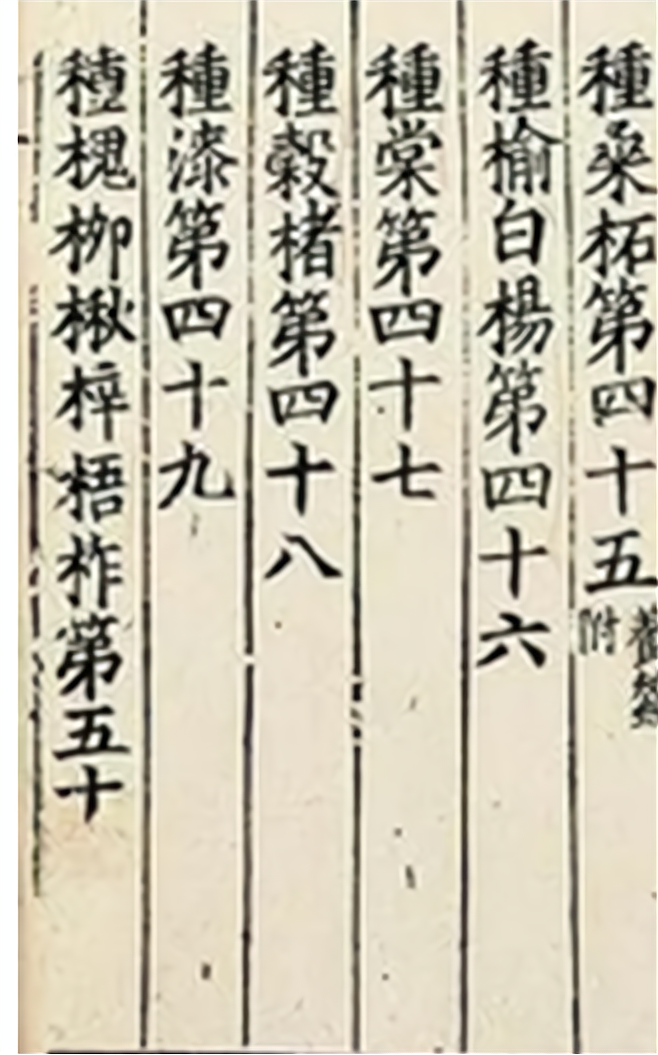 種桒柘第四十五養蠶附
種榆白楊第四十六
種棠第四十七
種榖楮第四十八
種漆第四十九
種槐柳楸梓梧柞第五十